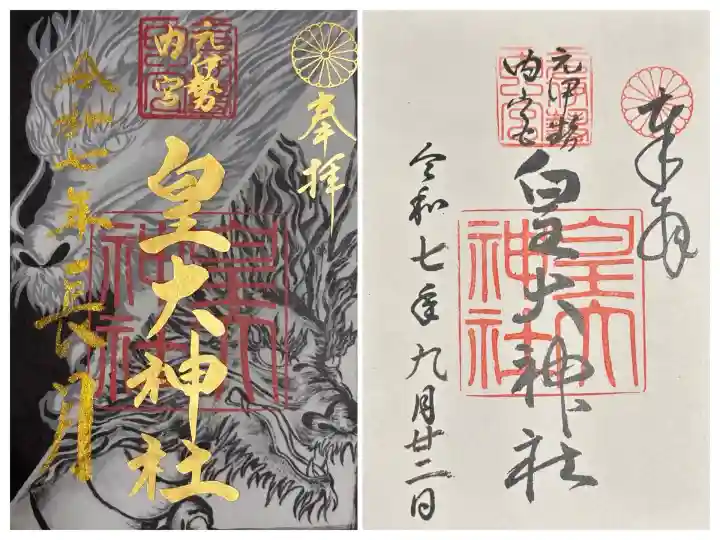 奉拝
元伊勢
内宮
皇大神社
令和七年長月
奉拝
元伊勢
内宮
皇大神社
皇大
神社
令和七年九月廿二日